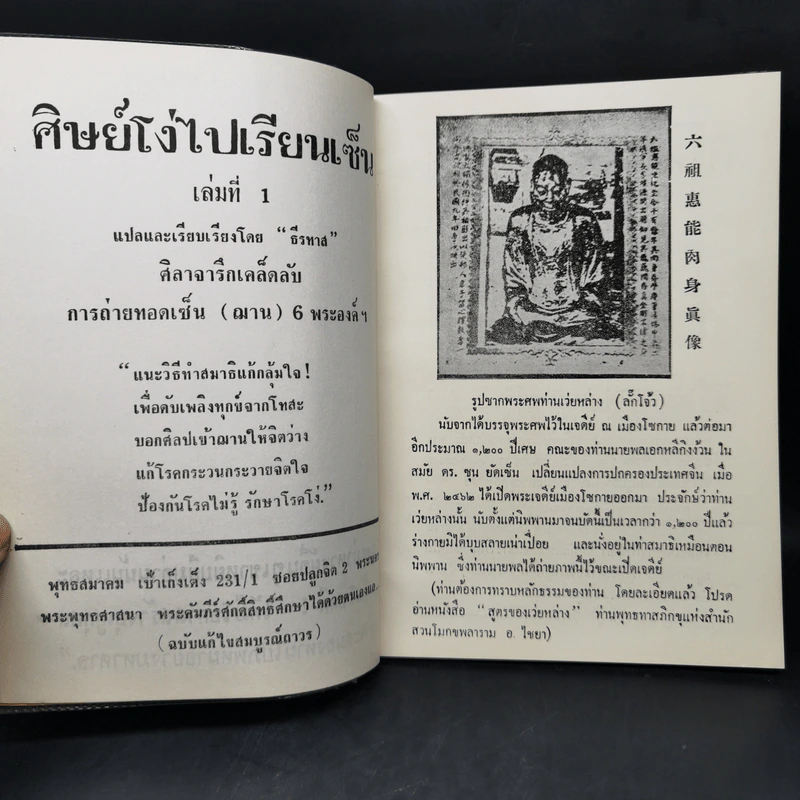 ศิษย์โง่ไปเรียนเซ็น
เล่มที่ 1
แปลและเรียบเรียงโดย “ธีรทาส”
ศิลาจารึกเคล็ดลับ
การถ่ายทอดเซ็น (ฌาน) 6 พระองค์ ฯ
“แนะวิธีทำสมาธิแก้กลุ้มใจ!
เพื่อดับเพลิงทุกข์จากโทสะ
บอกศิลปเข้าฌานให้จิตว่าง
แก้โรคกระวนกระวายจิตใจ
ป้องกันโรคไม่รู้ รักษาโรคโง่.”
พุทธสมาคม เป้าเก็งเต็ง 231/1 ซอยปลูกจิต 2 พระนคร
พระพุทธสาสนา พระคัมภีร์ศักดิ์สิทธิ์ศึกษาได้ด้วยตนเอง
(ฉบับแก้ไขสมบูรณ์ถาวร)
六祖惠能肉身眞像
รูปซากพระศพท่านเว่ยหล่าง (ลักโจ้ว)
นับจากได้บรรจุพระศพไว้ในเจดีย์ ณ เมืองโซกาย แล้วต่อมา
อีกประมาณ ๑,๒๐๐ ปีเศษ คณะของท่านนายพลเอกหลีกิงง้วน ใน
สมัย ดร. ซุน ยัดเซ็น เปลี่ยนแปลงการปกครองประเทศจีน เมื่อ
พ.ศ. ๒๔๖๒ ได้เปิดพระเจดีย์เมืองโซกายออกมา ประจักษ์ว่าท่าน
เว่ยหล่างนั้น นับตั้งแต่นิพพานมาจนบัดนี้เป็นเวลากว่า ๑,๒๐๐ ปีแล้ว
ร่างกายมิได้บุบสลายเน่าเปื่อย และนั่งอยู่ในท่าสมาธิเหมือนตอน
นิพพาน ซึ่งท่านนายพลได้ถ่ายภาพนี้ไว้ขณะเปิดเจดีย์
(ท่านต้องการทราบหลักธรรมของท่าน โดยละเอียดแล้ว โปรด
อ่านหนังสือ “สูตรของเว่ยหล่าง” ท่านพุทธทาสภิกขุแห่งสำนัก
สวนโมกขพลาราม อ. ไชยา)